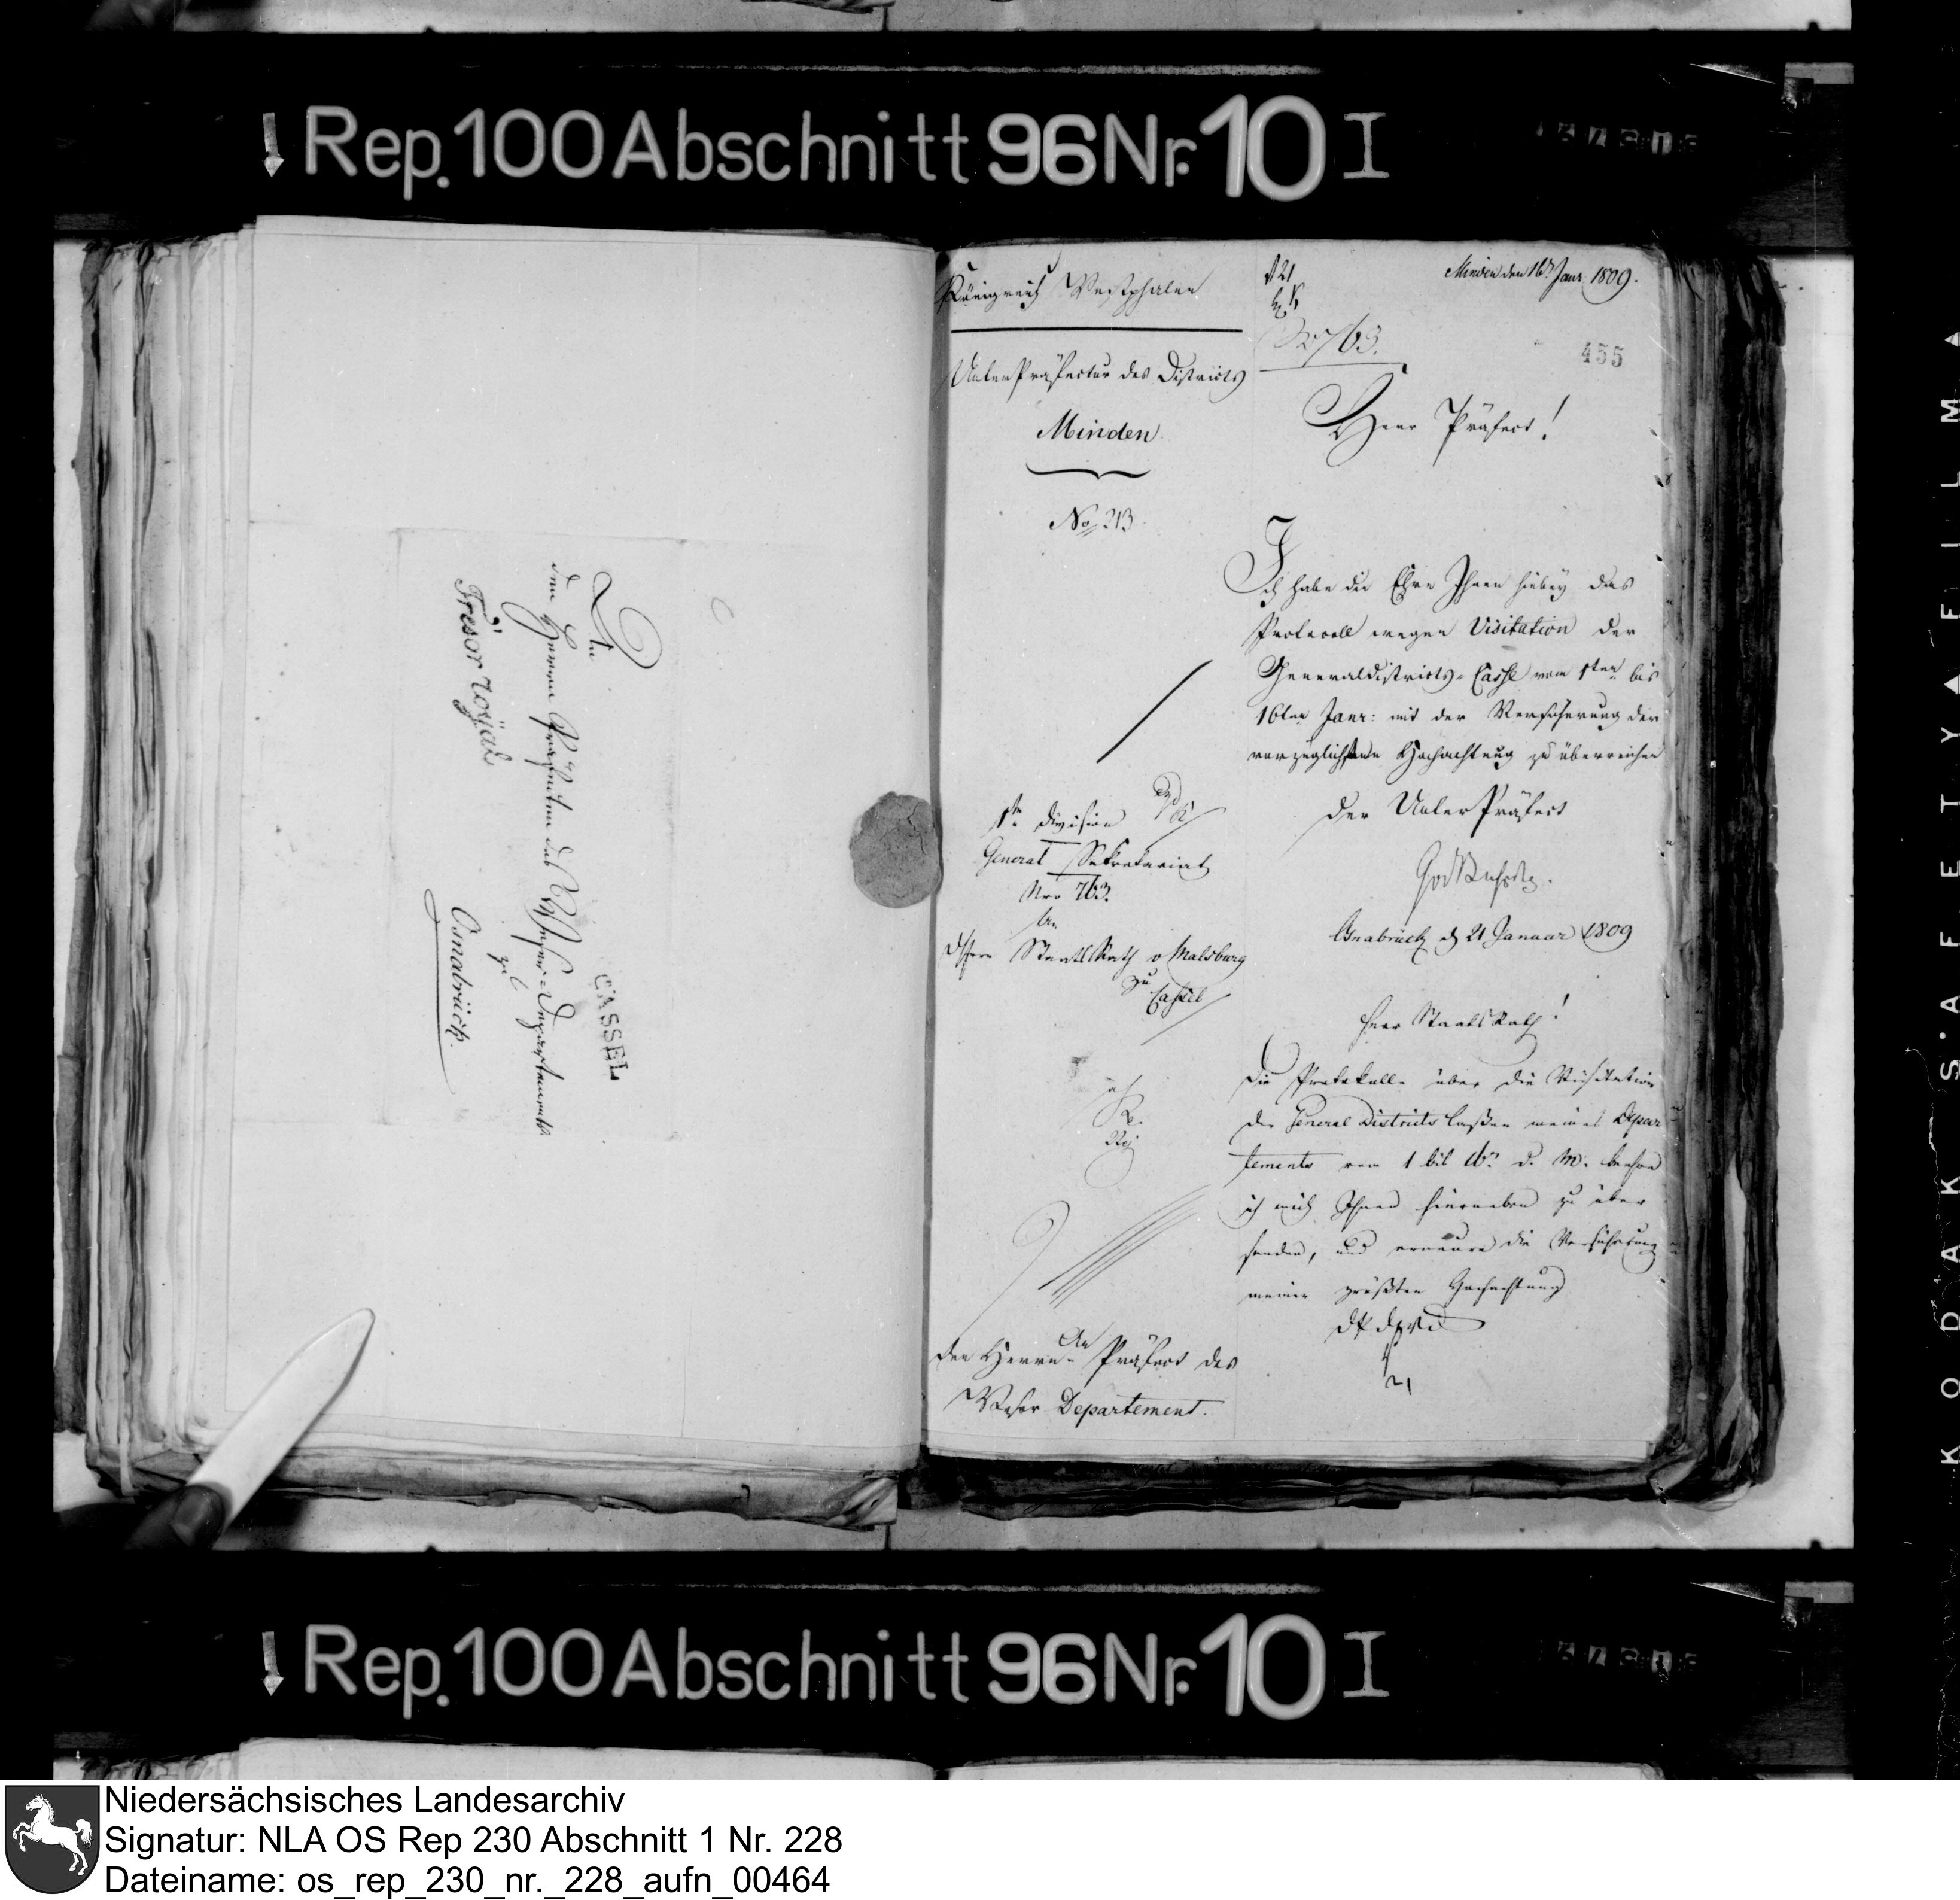 Rep. 100 Abschnitt 96 Nr. 10 I
An
den Herrn Präfecten des Weser-Departements
zu
Tresor royal
Osnabrück.
CASSEL
Königreich Westphalen
UnterPräfectur des Districts
Minden
No 213
Minden den 16t Janr 1809.
No 763.
455
Herr Präfect!
Ich habe die Ehre Ihnen hiebey das
Protocoll wegen Visitation der
Generaldistricts-Casse vom 1ten bis
16ten Janr: mit der Versicherung der
vorzüglichsten Hochachtung zu überreichen
Der UnterPräfect
1te Division
General Sekretariat
Nro 763.
An
d Herrn StaatsRath v Malsburg
zu
Cassel
Osnabrück d 21 Januar 1809
Herr StaatsRath!
Die Protokolle über die Visitation
der General Districts Cassen meines Depar
tements vom 1 bis 16n d. M. beehre
ich mich Ihnen hierneben zu über
senden, und erneure die Versicherung
meiner größten Hochachtung
An
den Herrn Präfect des
Weser Departement.
KODAK SAFETY FILM
Rep. 100 Abschnitt 96 Nr. 10 I
Niedersächsisches Landesarchiv
Signatur: NLA OS Rep 230 Abschnitt 1 Nr. 228
Dateiname: os_rep_230_nr._228_aufn_00464